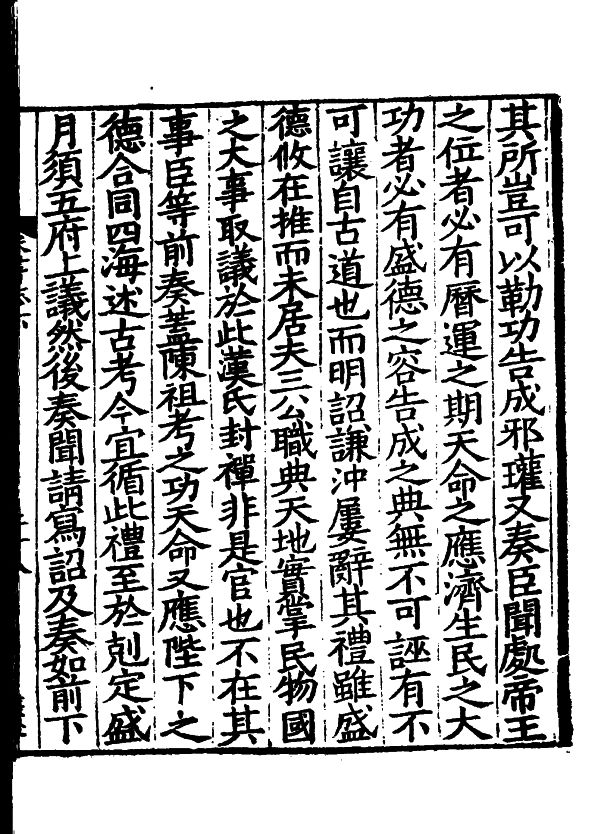 其所豈可以勒功告成邪瓘又奏臣聞處帝王
之位者必有曆運之期天命之應濟生民之大
功者必有盛德之容告成之典無不可誣有不
可讓自古道也而明詔謙沖屢辭其禮雖盛
德攸在推而未居夫三公職典天地實掌民物國
之大事取議於此漢氏封禪非是官也不在其
事臣等前奏蓋陳祖考之功天命又應陛下之
德合同四海述古考今宜循此禮至於剋定盛
月須五府上議然後奏聞請寫詔及奏如前下